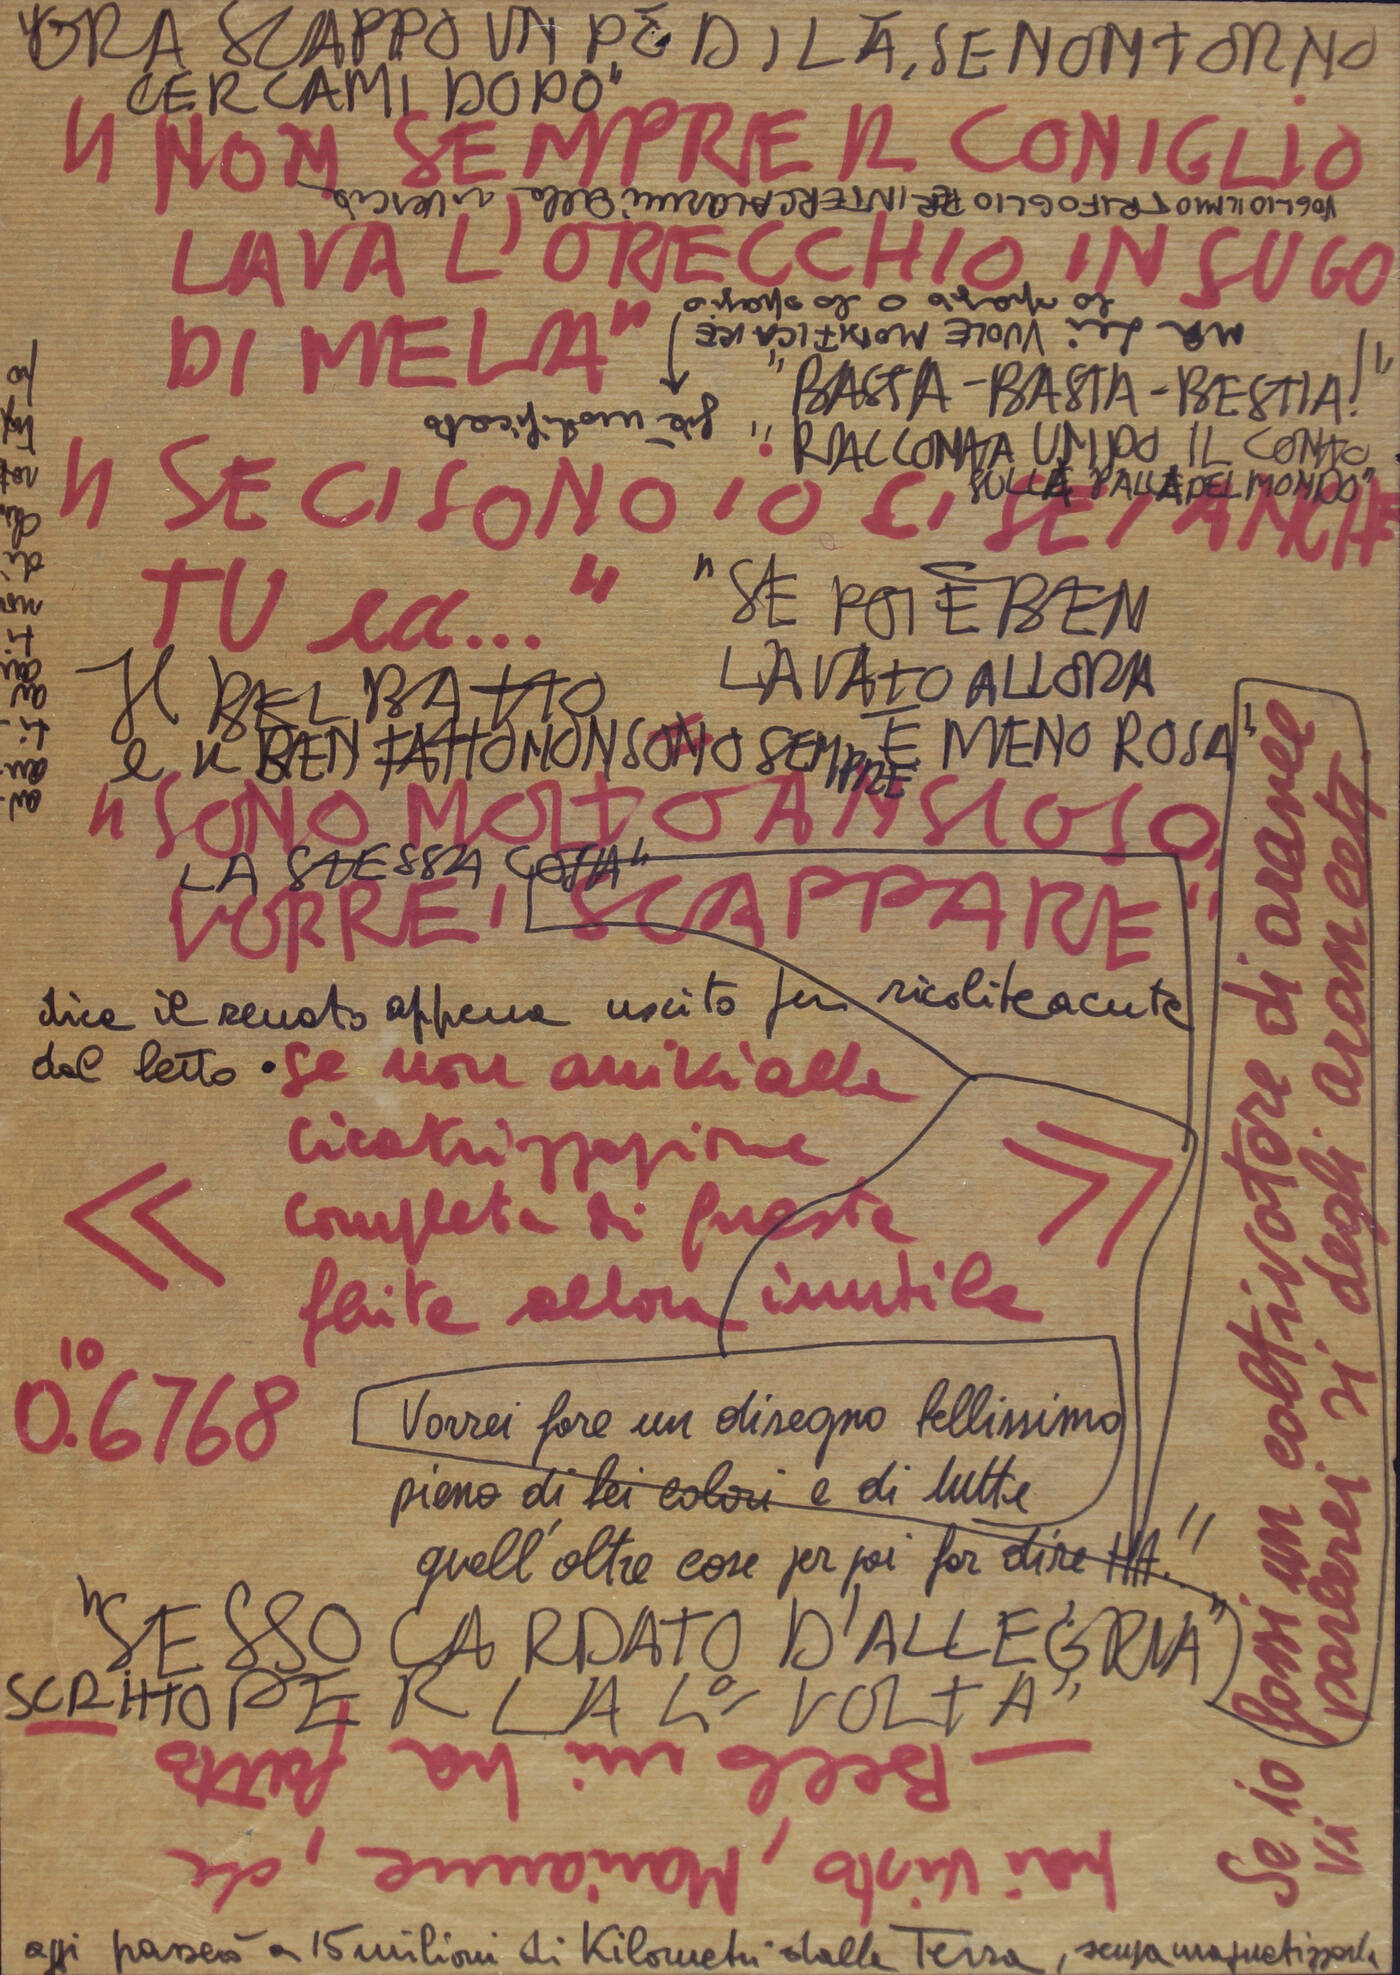 ORA SCAPPO UN PÒ DI LÀ, SE NON TORNO
CERCAMI DOPO"
" NON SEMPRE IL CONIGLIO
VOGLIO IL MIO TRIFOGLIO PER INTERCALARMI
LAVA L'ORECCHIO IN SUGO
DI MELA"
MA Lei VUOLE MODIFICARE
lo spazio o lo spazio
già modificato
"BASTA-BASTA-BESTIA!"
"RACCONTA UN PO IL CONTO
SULLA PALLA DEL MONDO"
" SE CI SONO IO CI SEI ANCHE
TU ed..."
"SE POI È BEN
LAVATO ALLORA
È MENO ROSA"
Il BEL BATTO
e il BEN FATTO NON SONO SEMPRE
LA STESSA COSA"
"SONO MOLTO ANSIOSO,
VORREI SCAPPARE"
dice il renato appena uscito per ricolite acuta
dal letto.
se non arriki alla
cicatrizzazione
<< completa di questa >>
flite allora inutile
10
0.6768
Vorrei fare un disegno bellissimo
pieno di bei colori e di tutte
quell'altre cose per poi far dire HA.."
"SESSO CARDATO D'ALLEGRIA"
SCRITTO PER LA 1° VOLTA"
hai visto, Marianne, che
— Bello mi ha fatto
oggi passerà a 15 milioni di Kilometri dalla Terra, senza magnetizzarla
Se io fossi un coltivatore di aranee
vi parlerei sì degli aranceti.